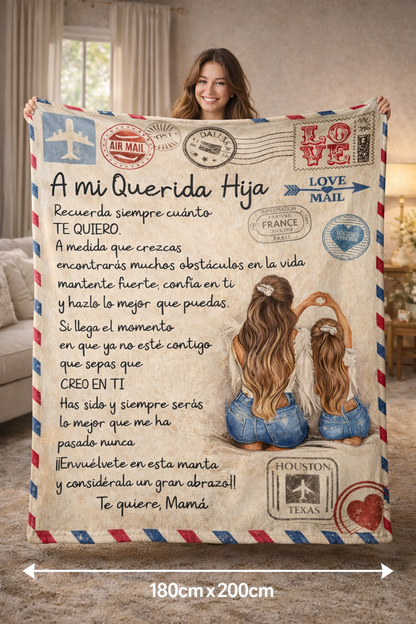 AIR MAIL
POST
DALLAS
LOVE
A mi Querida Hija
LOVE
MAIL
Recuerda siempre cuánto
TE QUIERO.
FRANCE
PARIS
A medida que crezcas
encontrarás muchos obstáculos en la vida
mantente fuerte, confía en ti
y hazlo lo mejor que puedas.
Si llega el momento
en que ya no esté contigo
que sepas que
CREO EN TI
Has sido y siempre serás
lo mejor que me ha
pasado nunca
¡¡Envuélvete en esta manta
y considérala un gran abrazo!!
Te quiere, Mamá
HOUSTON,
TEXAS
180cm x 200cm